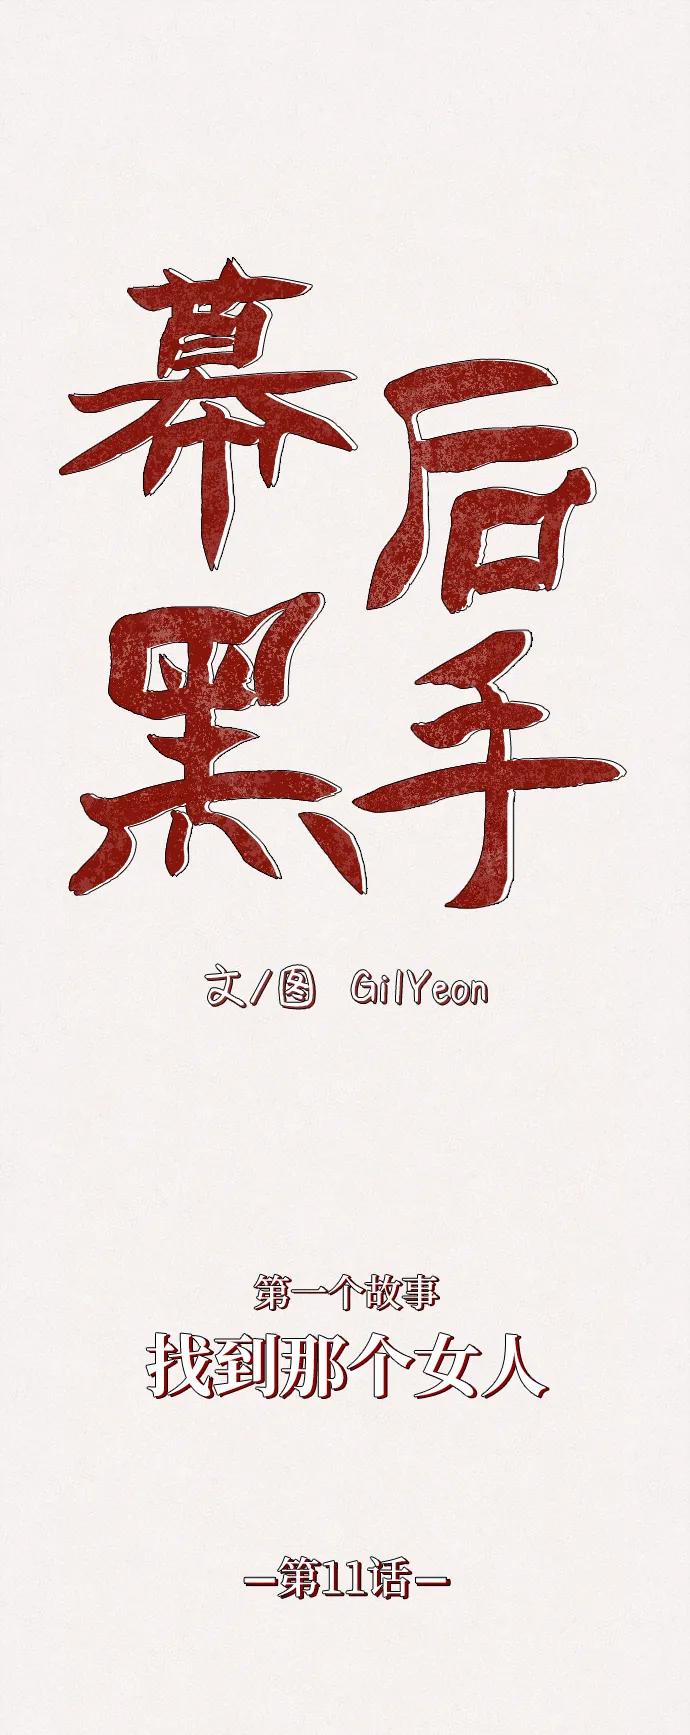 幕后
黑手
文/图 GilYeon
第一个故事
找到那个女人
—第11话—